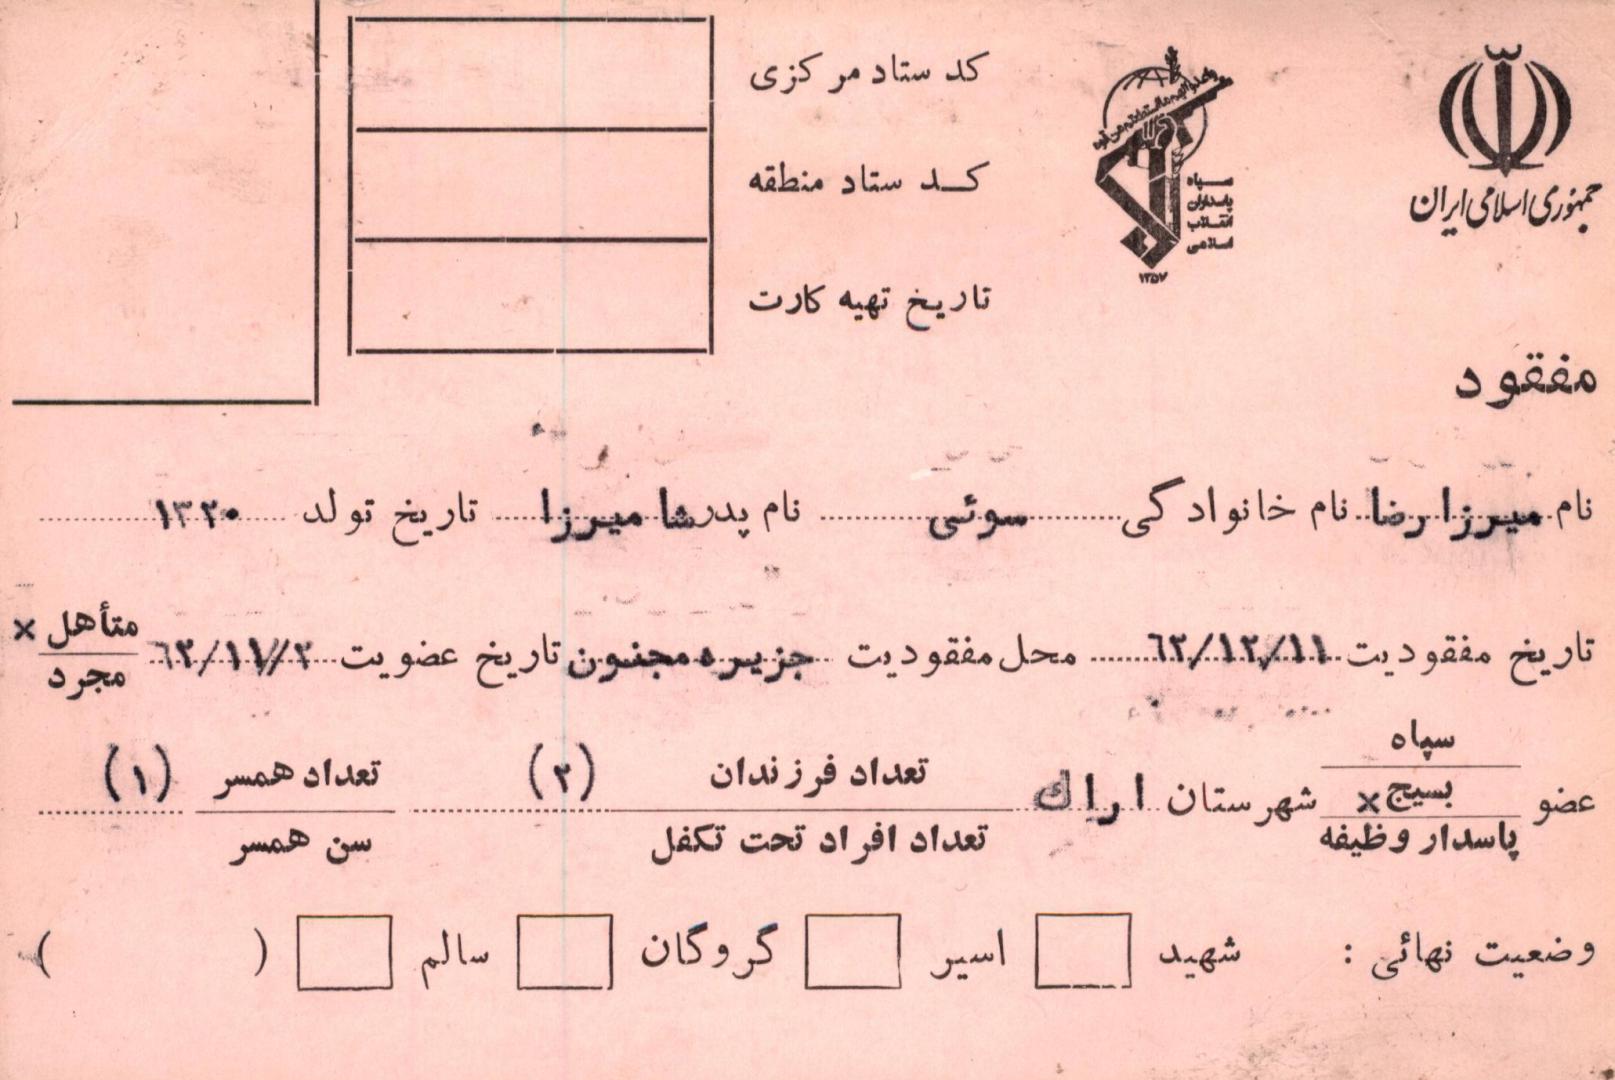 جمهوری اسلامی ایران
سپاه
پاسداران
انقلاب
اسلامی
۱۳۵۷
کد ستاد مرکزی
کد ستاد منطقه
تاریخ تهیه کارت
مفقود
نام میرزا رضا نام خانوادگی سوئی نام پدر شا میرزا تاریخ تولد ۱۳۲۰
تاریخ مفقودیت ۶۲/۱۲/۱۱ محل مفقودیت جزیره مجنون تاریخ عضویت ۶۲/۱۱/۲ متأهل × مجرد
عضو سپاه بسیج × پاسدار وظیفه شهرستان اراك تعداد فرزندان (۲) تعداد افراد تحت تکفل تعداد همسر (۱) سن همسر
وضعیت نهائی : شهید اسیر گروگان سالم ( )